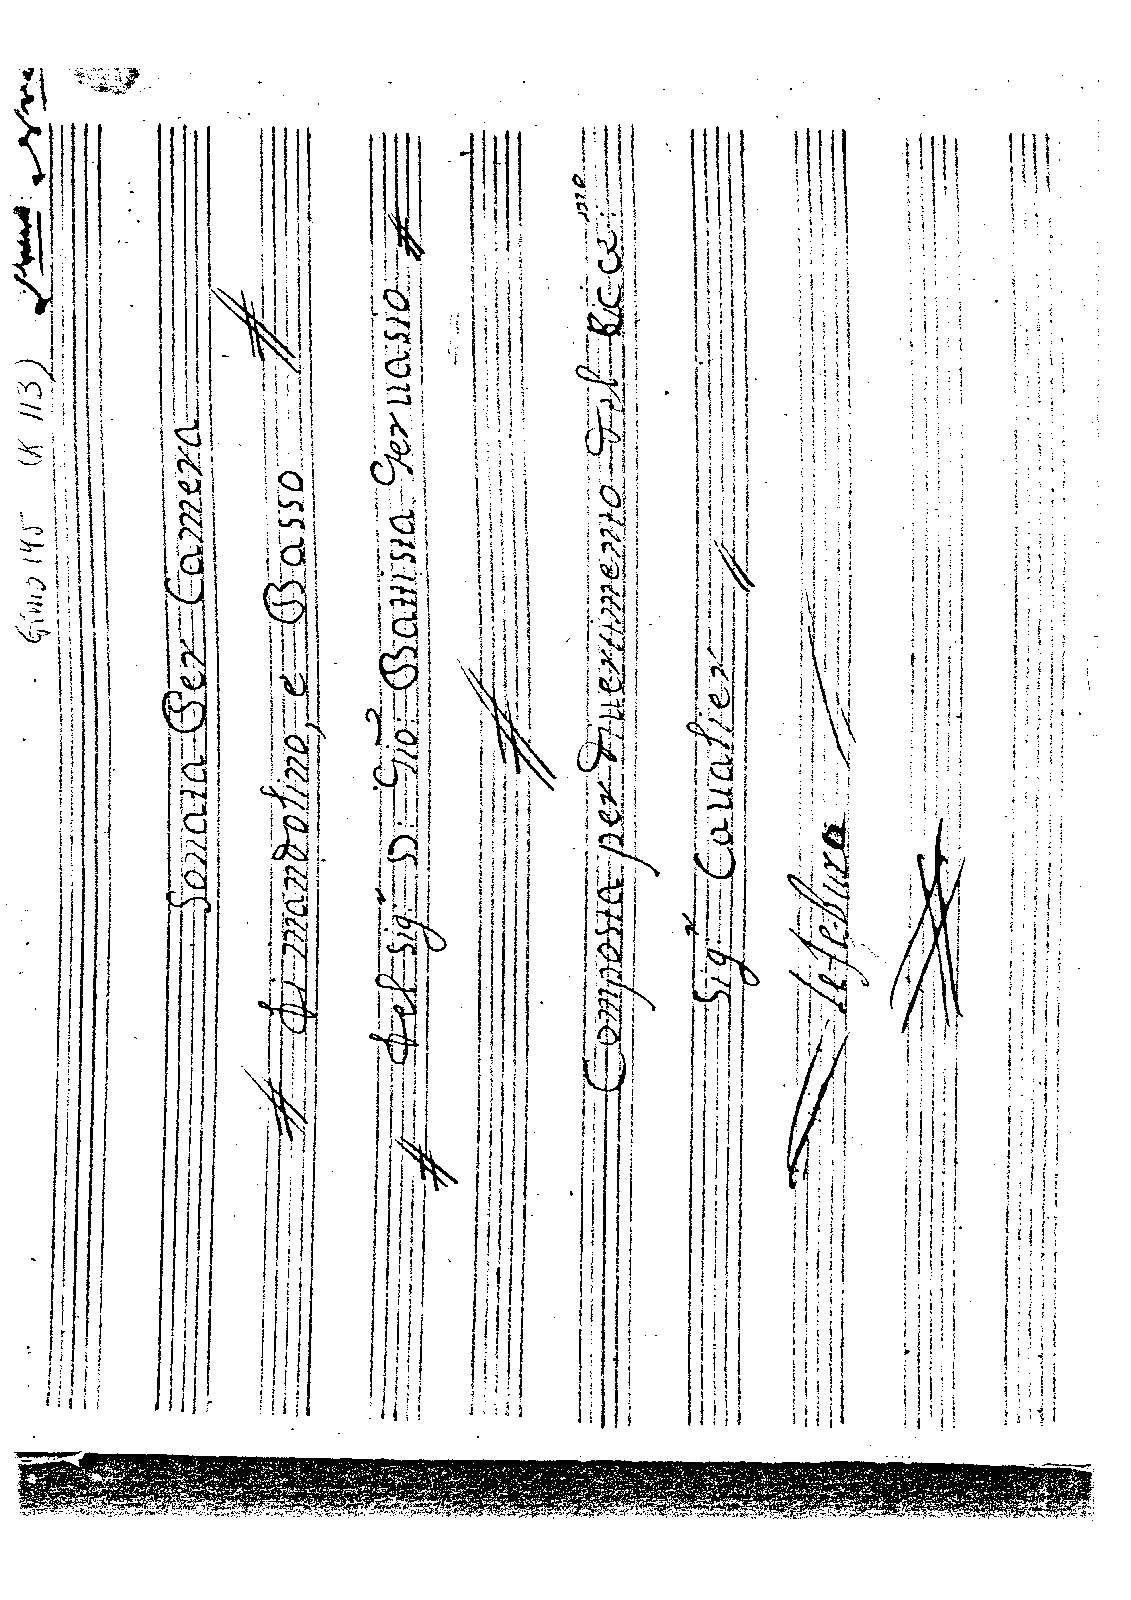 Gimo 145 (K 113)
Sonata Per Camera
Di mandolino, e Basso
Del sig.r D. Gio: Battista Geruasio
Composta per Diuertimento Del Ricc.mo
Sig.r Caualier
Lefebure